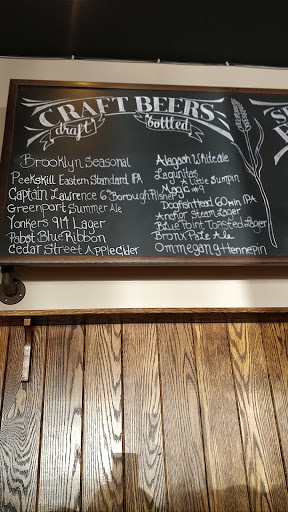 CRAFT BEERS
draft
bottled
Brooklyn Seasonal
Peekskill Eastern Standard IPA
Captain Lawrence 6th Borough Pilsner
Greenport Summer Ale
Yonkers 914 Lager
Pabst Blue Ribbon
Cedar Street Apple Cider
Allagash White ale
Lagunitas
A little Sumpin
Magic #9
Dogfishhead 60 min IPA
Anchor Steam Lager
Blue Point Toasted Lager
Bronx Pale Ale
Ommegang Hennepin